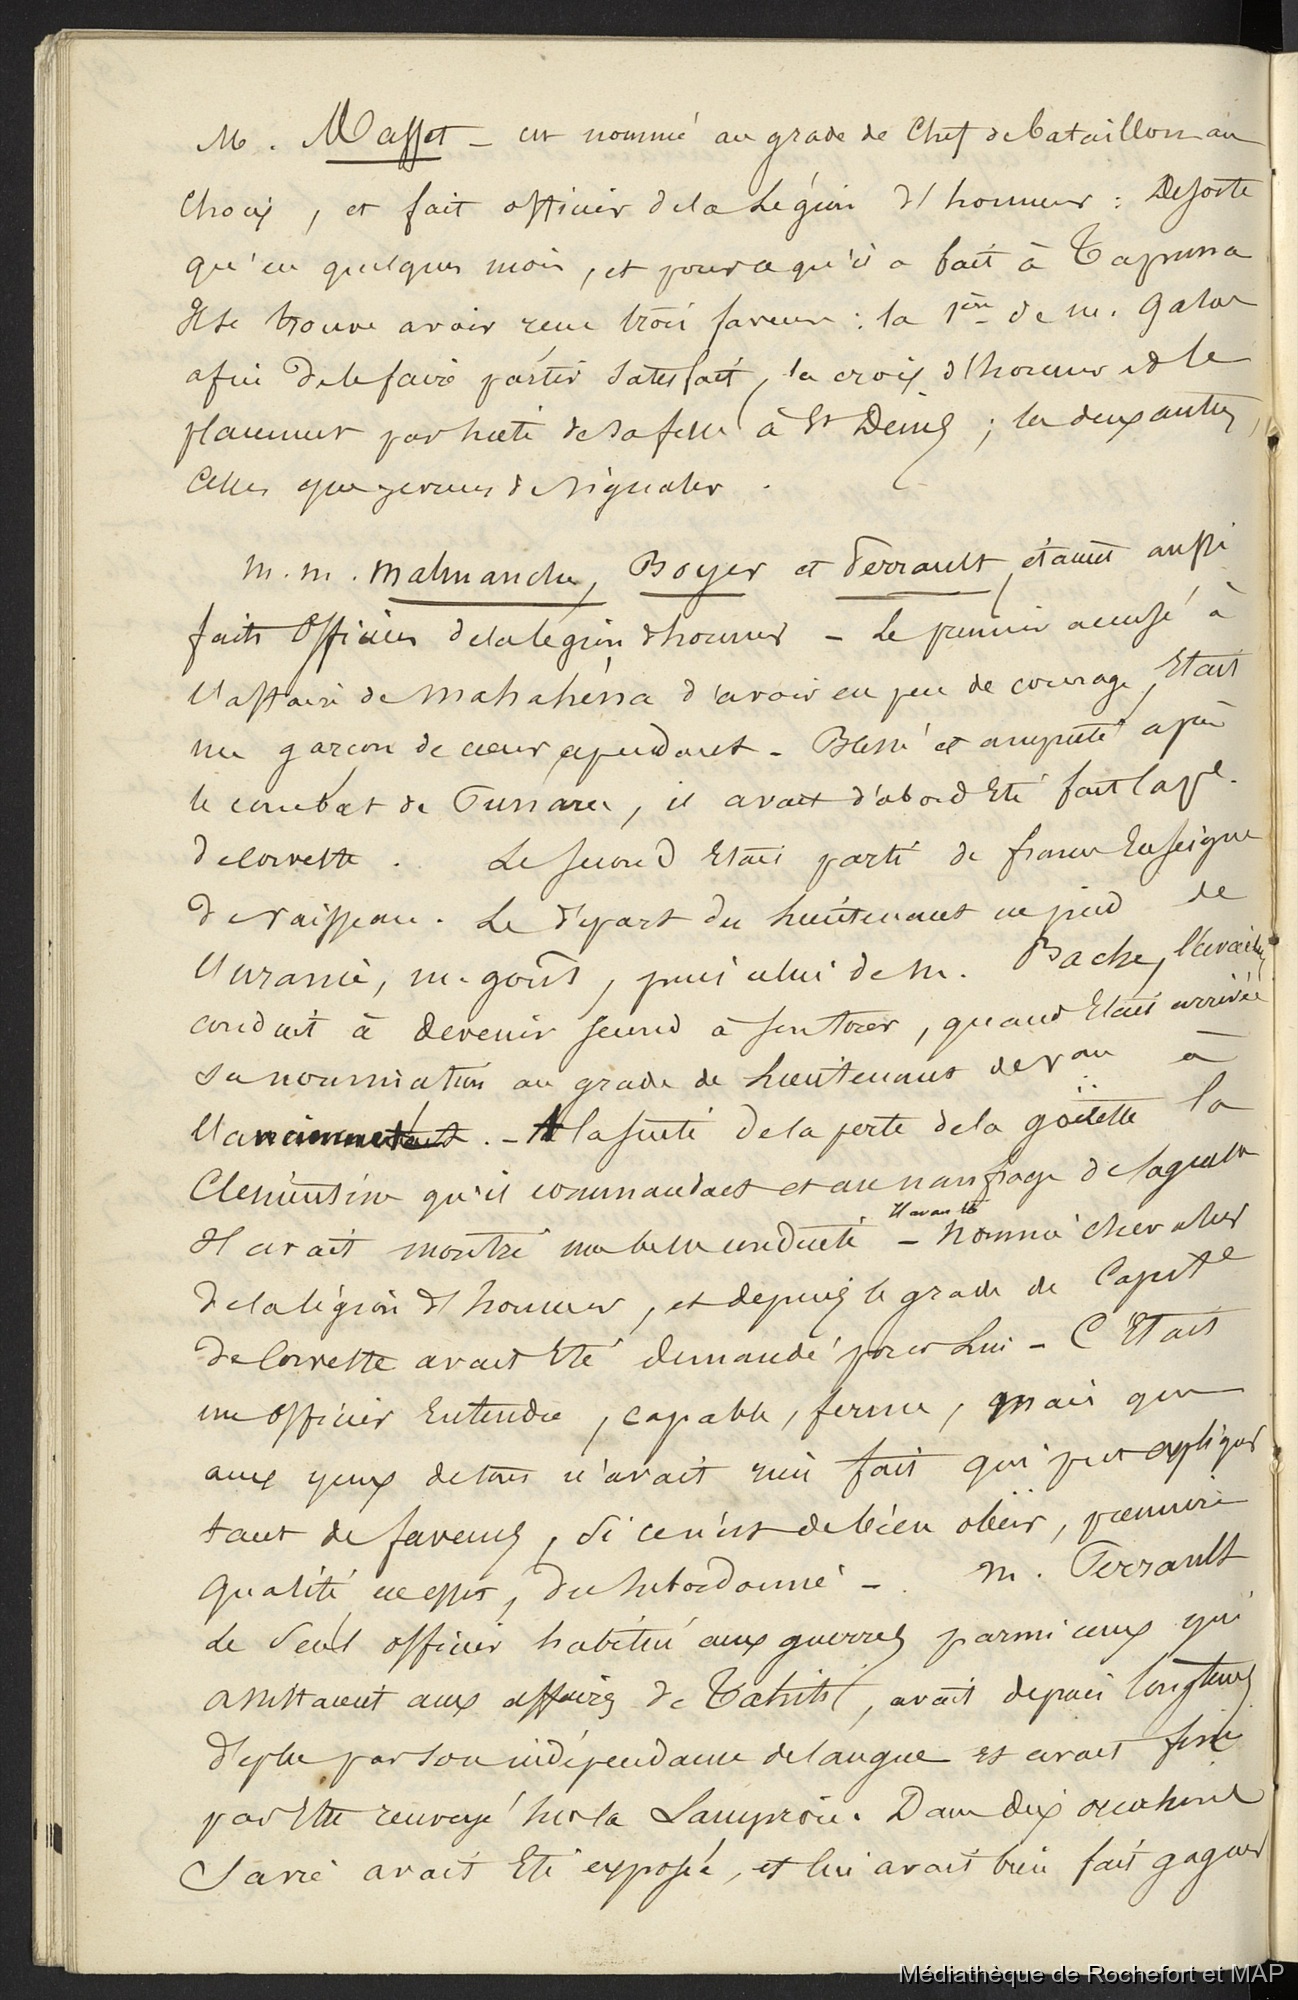 M. Masset - est nommé au grade de Chef de bataillon au
Choix, et fait officier de la Légion d'honneur : De sorte
qu'en quelques mois, et pour ce qu'il a fait à Tapuna
Il se trouve avoir reçu trois faveurs : la 1ère de m. Gabue
afin de le faire partir satisfait, la croix d'honneur et le
placement par suite de sa fille à St Denis ; les deux autres,
Celles que je viens de signaler.
m. m. Malmanche, Boyer et Perrault, étaient aussi
faits Officiers de la légion d'honneur - Le premier accusé à
l'affaire de Mahahéna d'avoir eu peu de courage, Etait
un garçon de cœur cependant - Blessé et amputé après
le combat de Punaru, il avait d'abord Eté fait Cape.
de Corvette. Le second Etait parti de france Enseigne
de vaisseau. Le départ du lieutenant en pied de
l'uranie, m. goût, puis celui de M. Bache, l'avaient
conduit à devenir second à son tour, quand Etait arrivée
sa nomination au grade de lieutenant de vau à
l'ancienneté. - A la suite de la perte de la goëlette la
Clémentine qu'il commandait et au naufrage de laquelle
Il avait montré une belle conduite - Il avait été nommé chevalier
de la légion d'honneur, et depuis le grade de Capitne
de Corvette avait Eté demandé pour Lui - C'Etait
un officier Entendu, capable, ferme, mais qui
aux yeux de tous n'avait rien fait qui put expliquer
tant de faveurs, si ce n'est de bien obéir, première
qualité en effet, du subordonné - . m. Perrault
le seul officier habitué aux guerres parmi ceux qui
assistaient aux affaires de Tahiti, avait depuis longtems
déplu par son indépendance de langue et avait fini
par Etre renvoyé sur la Lamproie. Dans dix occasions
sa vie avait Eté exposée, et lui avait bien fait gagner
Médiathèque de Rochefort et MAP